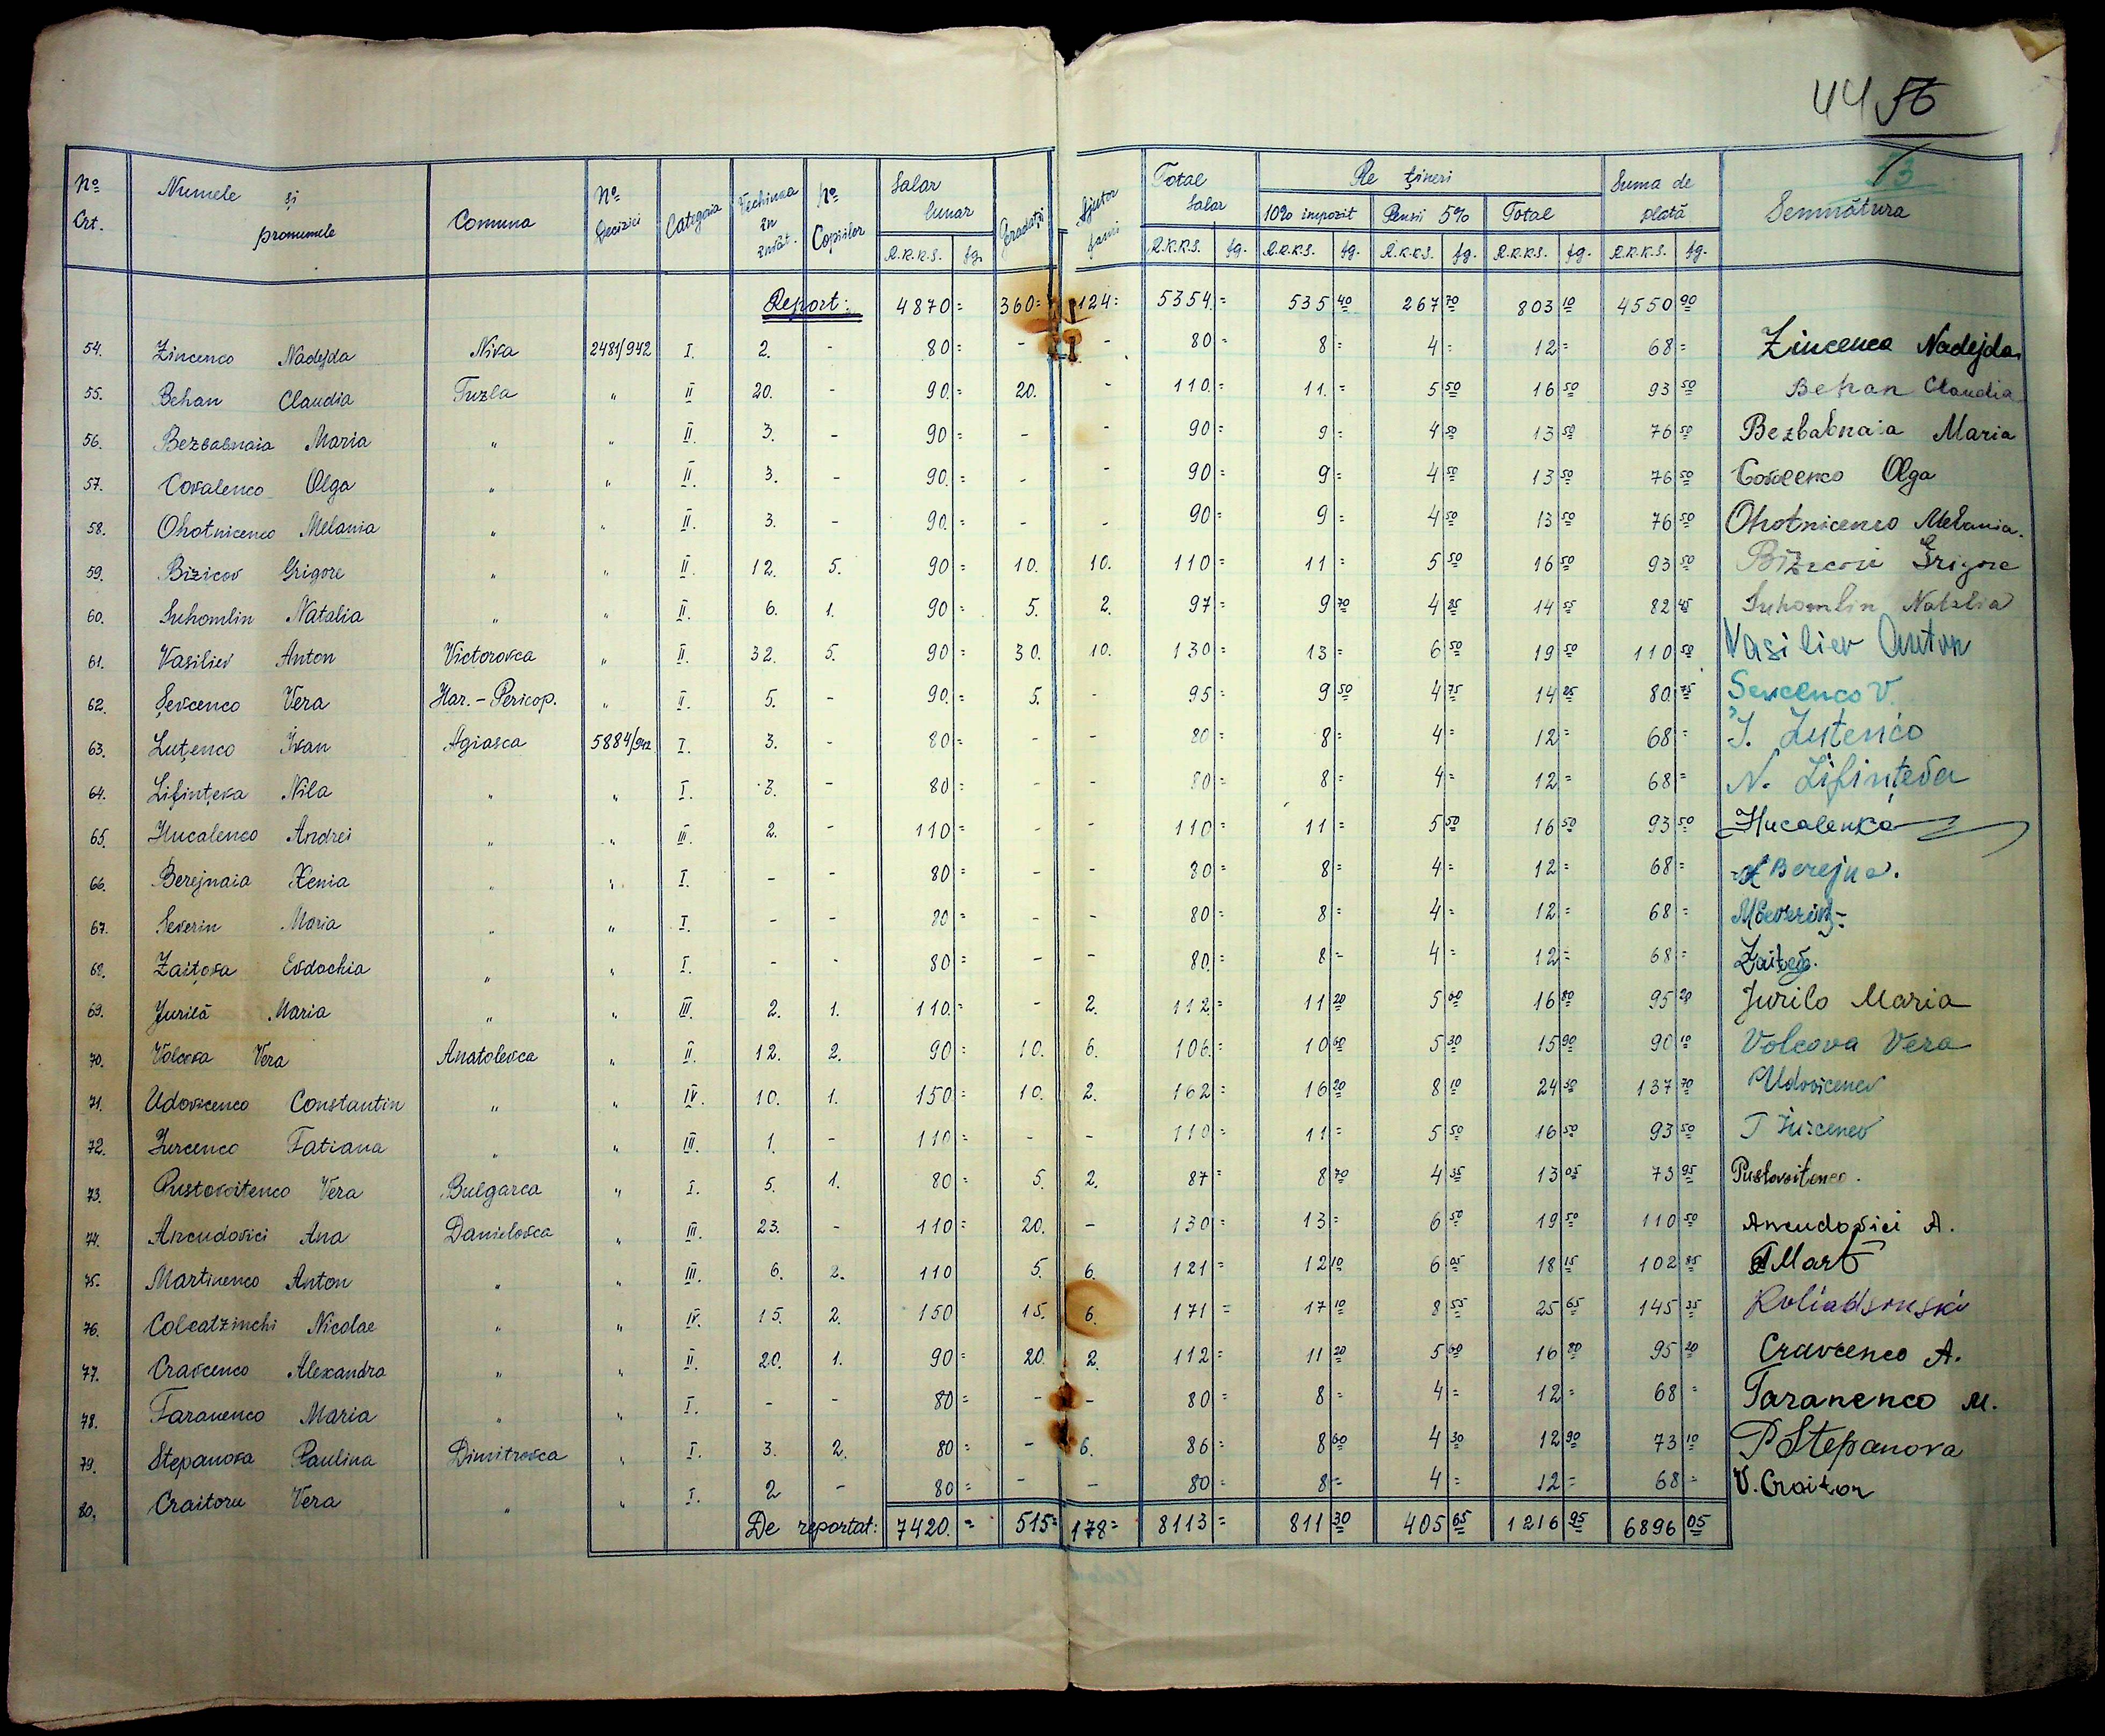 44 56
13
Nº Crt. Numele și pronumele Comuna Nº Decizici Categoria Vechimea în învăț. Nº Copiilor Salar lunar Gradații Ajutor fami Total Salar Re țineri Suma de plată Semnătura
10% impozit Pensii 5% Total
R.K.K.S. fg. R.K.K.S. fg. R.K.K.S. fg. R.K.K.S. fg. R.K.K.S. fg. R.K.K.S. fg.
Report: 4870 = 360 = 124 = 5354 = 535 40 267 70 803 10 4550 90
54. Zincenco Nadejda Nika 2481/942 I. 2. - 80 = - - 80 = 8 = 4 = 12 = 68 = Zincenco Nadejda
55. Behan Claudia Tuzla " II 20. - 90 = 20. - 110 = 11 = 5 50 16 50 93 50 Behan Claudia
56. Bezbabnaia Maria " " II. 3. - 90 = - - 90 = 9 = 4 50 13 50 76 50 Bezbabnaia Maria
57. Covalenco Olga " " II. 3. - 90 = - - 90 = 9 = 4 50 13 50 76 50 Covalenco Olga
58. Ohotnicenco Melania " " II. 3. - 90 = - - 90 = 9 = 4 50 13 50 76 50 Ohotnicenco Melania.
59. Bizicov Grigore " " II. 12. 5. 90 = 10. 10. 110 = 11 = 5 50 16 50 93 50 Grigore
60. Suhomlin Natalia " " II. 6. 1. 90 = 5. 2. 97 = 9 70 4 85 14 55 82 45 Suhomlin Natalia
61. Vasiliev Anton Victorovca " II. 32. 5. 90 = 30. 10. 130 = 13 = 6 50 19 50 110 50 Vasiliev Anton
62. Șevcenco Vera Har.-Pericop. " II. 5. - 90 = 5. - 95 = 9 50 4 75 14 25 80 75 Sevcenco V.
63. Luțenco Ivan Agiasca 5884/942 I. 3. - 80 = - - 80 = 8 = 4 = 12 = 68 = I. Lutenco
64. Lifințeva Nila " " I. 3. - 80 = - - 80 = 8 = 4 = 12 = 68 = N. Lifințeva
65. Hucalenco Andrei " " III. 2. - 110 = - - 110 = 11 = 5 50 16 50 93 50 Hucalenko
66. Berejnaia Xenia " " I. - - 80 = - - 80 = 8 = 4 = 12 = 68 = Berejna.
67. Severin Maria " " I. - - 80 = - - 80 = 8 = 4 = 12 = 68 = MSeverin
68. Zaițova Evdochia " " I. - - 80 = - - 80 = 8 = 4 = 12 = 68 =
69. Jurilă Maria " " III. 2. 1. 110 = - 2. 112 = 11 20 5 60 16 80 95 20 Jurilo Maria
70. Volcova Vera Anatolevca " II. 12. 2. 90 = 10. 6. 106 = 10 60 5 30 15 90 90 10 Volcova Vera
71. Udovicenco Constantin " " IV. 10. 1. 150 = 10. 2. 162 = 16 20 8 10 24 30 137 70 Udovicenco
72. Jurcenco Tatiana " " III. 1. - 110 = - - 110 = 11 = 5 50 16 50 93 50 T Jurcenco
73. Pustovoitenco Vera Bulgarca " I. 5. 1. 80 = 5. 2. 87 = 8 70 4 35 13 05 73 95 Pustovoitenco.
74. Ancudovici Ana Danielovca " III. 23. - 110 = 20. - 130 = 13 = 6 50 19 50 110 50 Ancudovici A.
75. Martinenco Anton " " III. 6. 2. 110 5. 6. 121 = 12 10 6 05 18 15 102 85 Mart
76. Colcatzinchi Nicolae " " IV. 15. 2. 150 15. 6. 171 = 17 10 8 55 25 65 145 35
77. Cravcenco Alexandra " " II. 20. 1. 90 = 20. 2. 112 = 11 20 5 60 16 80 95 20 Cravcenco A.
78. Taranenco Maria " " I. - - 80 = - - 80 = 8 = 4 = 12 = 68 = Taranenco M.
79. Stepanova Paulina Dimitrovca " I. 3. 2. 80 = - 6. 86 = 8 60 4 30 12 90 73 10 P Stepanova
80. Craitoru Vera " " I. 2 - 80 = - - 80 = 8 = 4 = 12 = 68 = V. Craitor
De reportat: 7420. = 515 = 178 = 8113 = 811 30 405 65 1216 95 6896 05